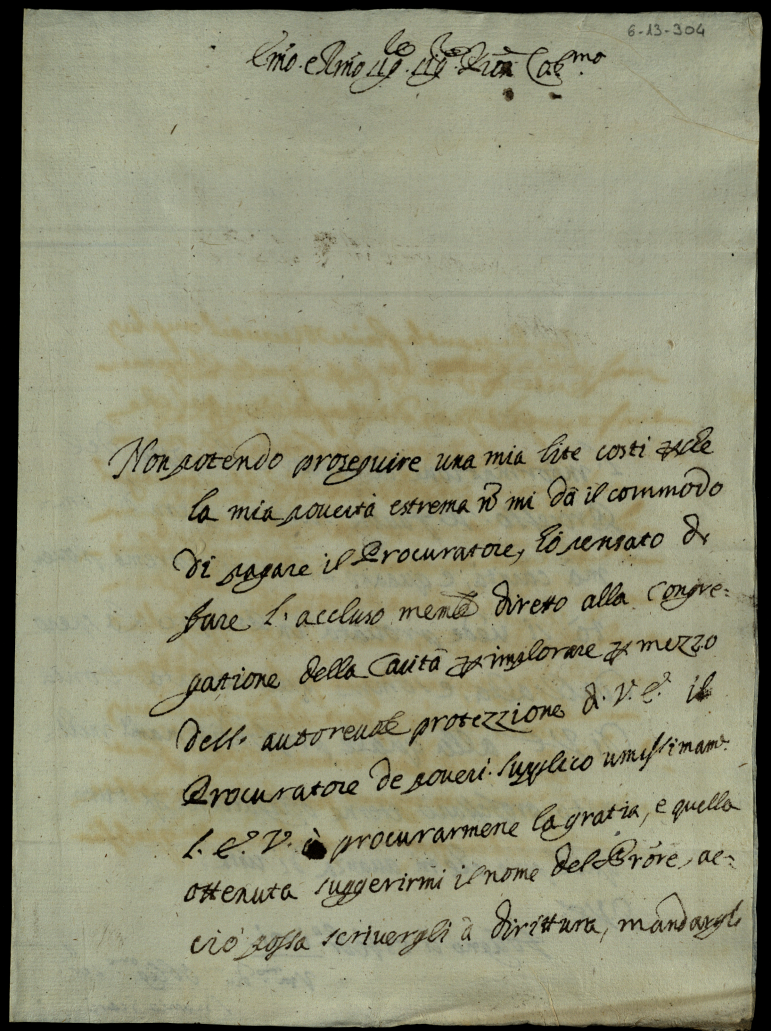 6-13-304
Non potendo proseguire una mia lite costì perche
la mia povertà estrema nō mi dà il commodo
di pagare il Procuratore, hò pensato di
fare l'accluso memle diretto alla Congre=
gatione della Carità per implorare per mezzo
dell'autorevole protezzione di V. E. il
Procuratore de poveri. Supplico umissimamte
l'E. V. à procurarmene la gratia, e quella
ottenuta suggerirmi il nome del Prōre, ac=
ciò possa scrivergli à dirittura, mandargli